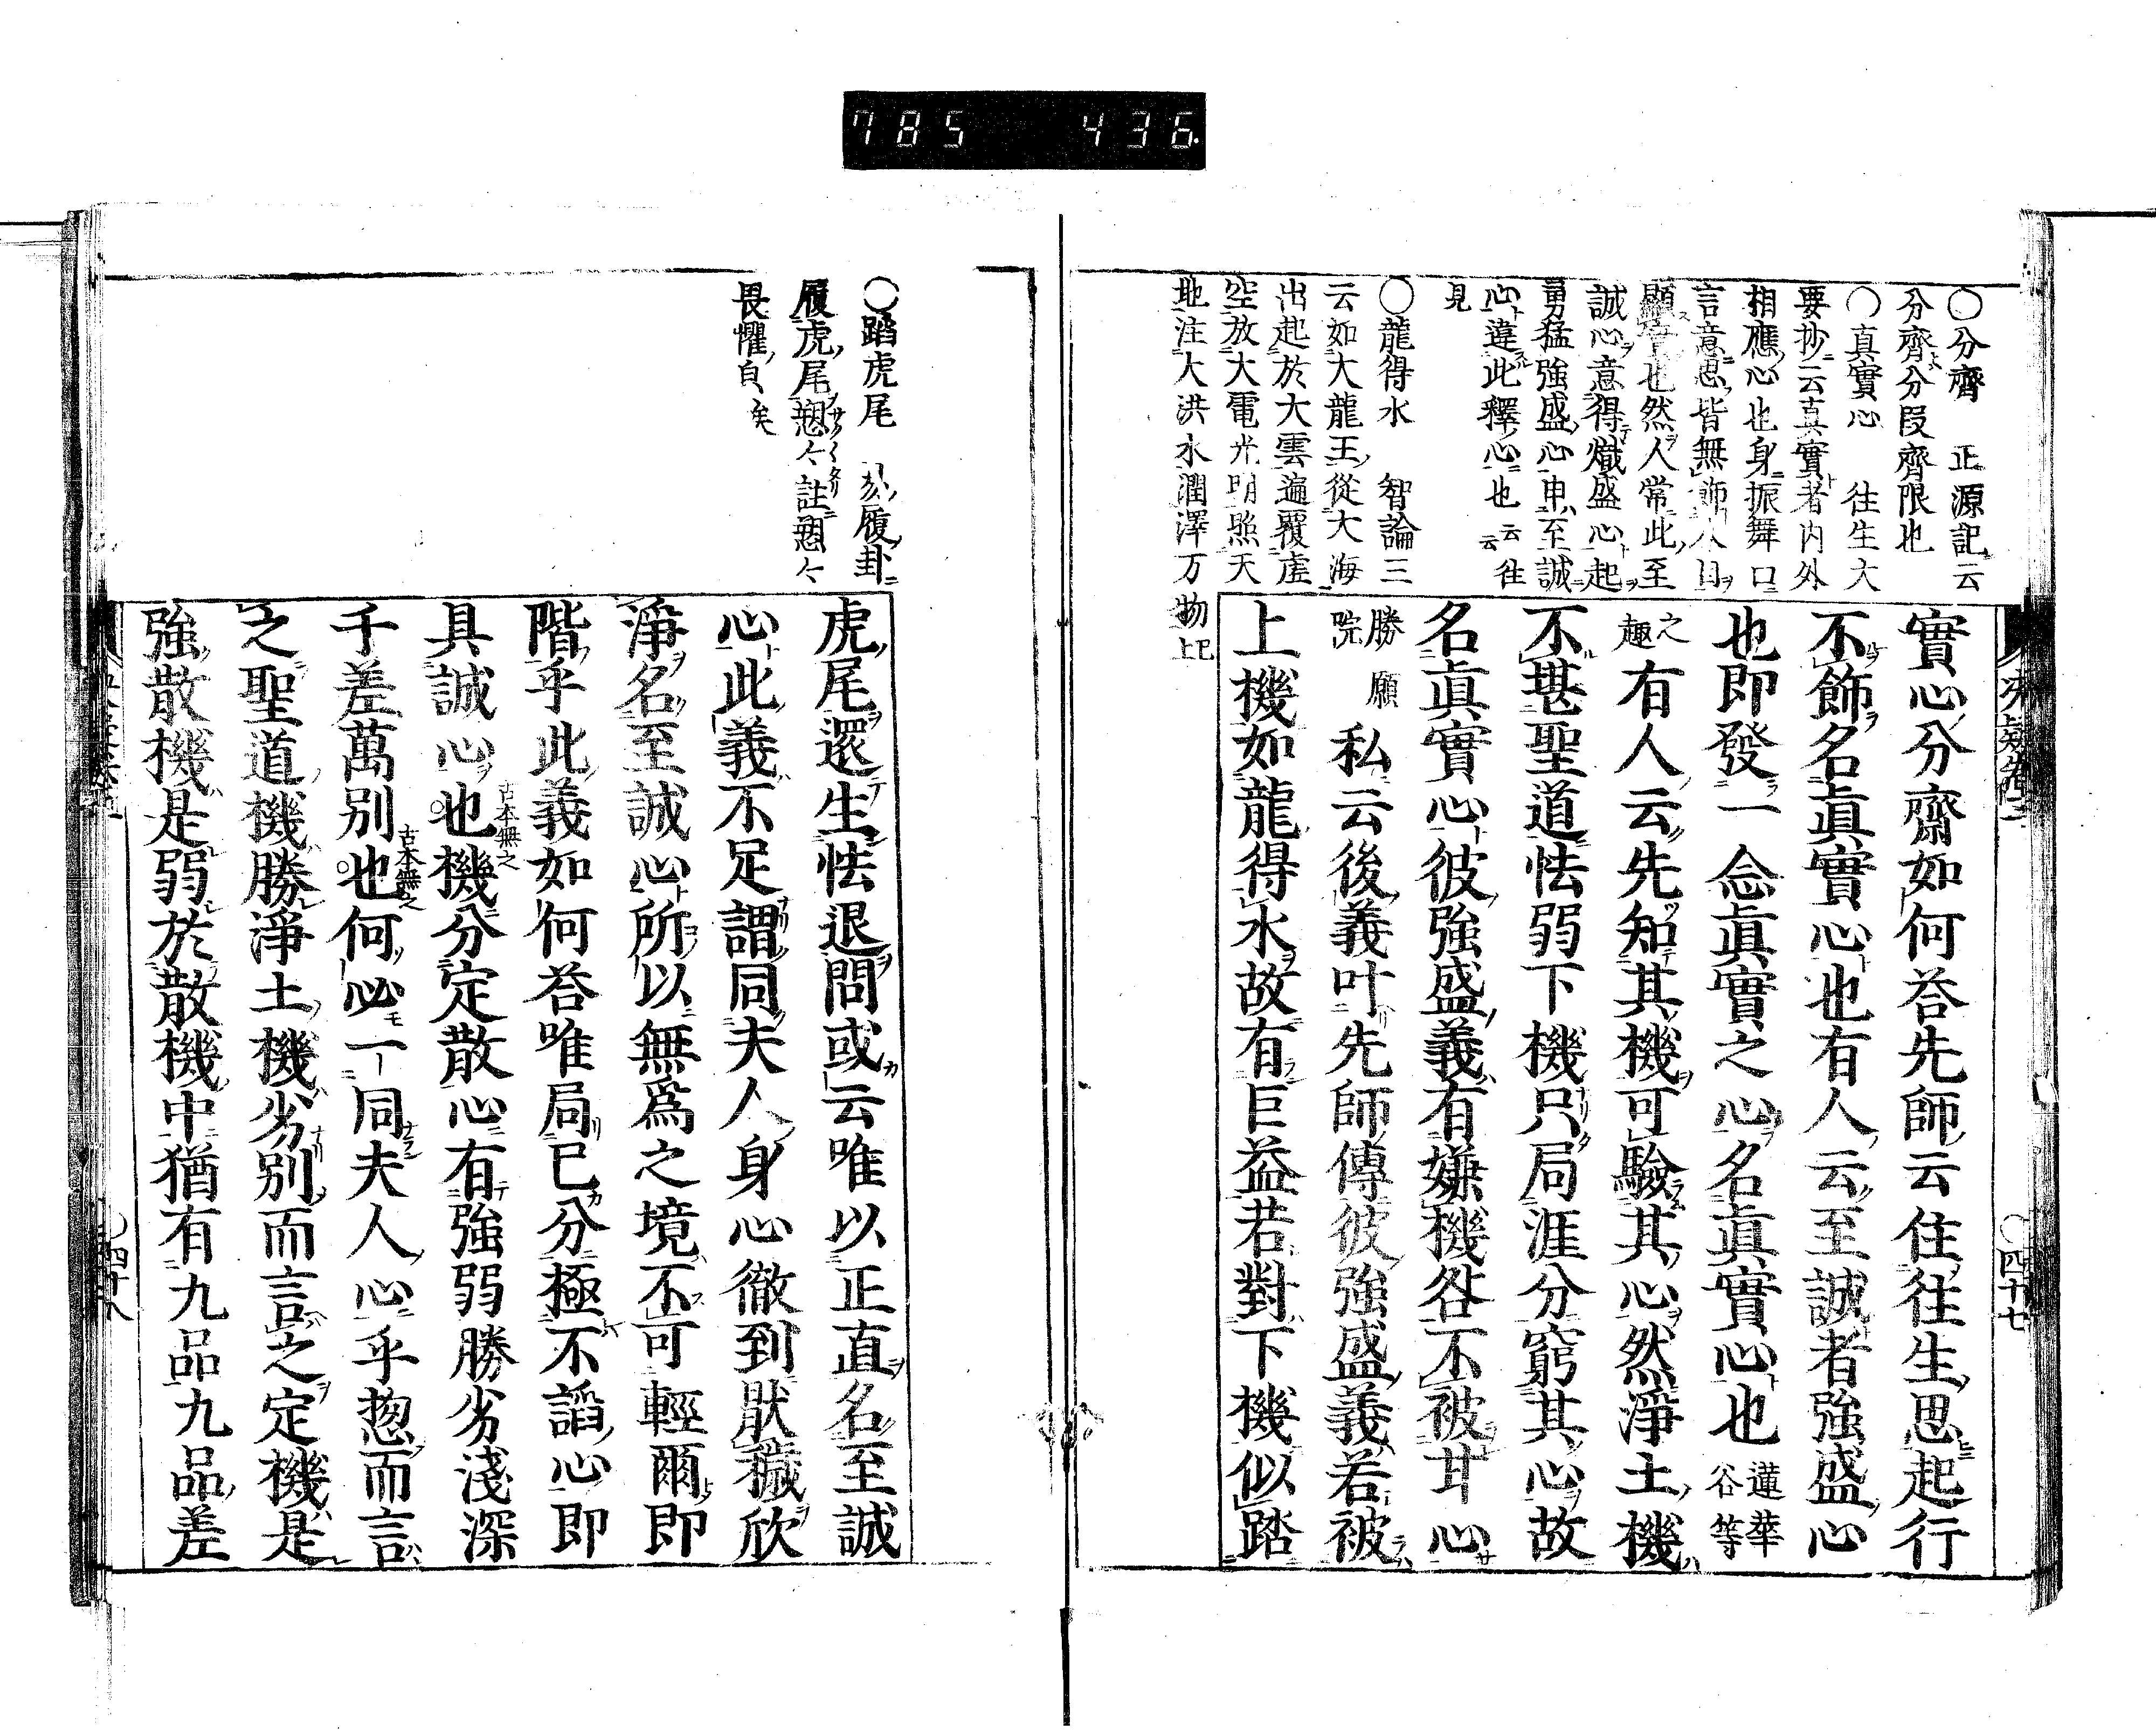 785 436
○分齊 正源記云
分齊分段齊限也
○真實心 往生大
要抄云真實者內外
相應心也身振舞口
言意思皆無飾人目
顯也然人常此至
誠心意得熾盛心起
勇猛強盛心申至誠
心違此釋心也云云往
見
○龍得水 智論三
云如大龍王從大海
出起於大雲遍覆虛
空放大電光明照天
地注大洪水潤澤万
物已上
實心分齊如何荅先師云住往生思起行
不飾名眞實心也有人云至誠者強盛心
也即發一念眞實之心名眞實心也蓮華谷等
之趣有人云先知其機可驗其心然淨土機
不堪聖道怯弱下機只局涯分窮其心故
名眞實心彼強盛義有嫌機咎不被甘心
勝願院私云後義叶先師傳彼強盛義若被
上機如龍得水故有巨益若對下機似踏
四十七
○蹈虎尾 履卦
履虎尾愬々註愬々
畏懼皃矣
虎尾還生怯退問或云唯以正直名至誠
心此義不足謂同夫人身心徹到猒穢欣
淨名至誠心所以無爲之境不可輕爾即
階乎此義如何荅唯局已分極不謟心即
具誠心也機分定散心有強弱勝劣淺深
古本無之
千差萬別也何必一同夫人心乎惣而言
古本無之
之聖道機勝淨土機劣別而言之定機是
強散機是弱於散機中猶有九品九品差
四十八